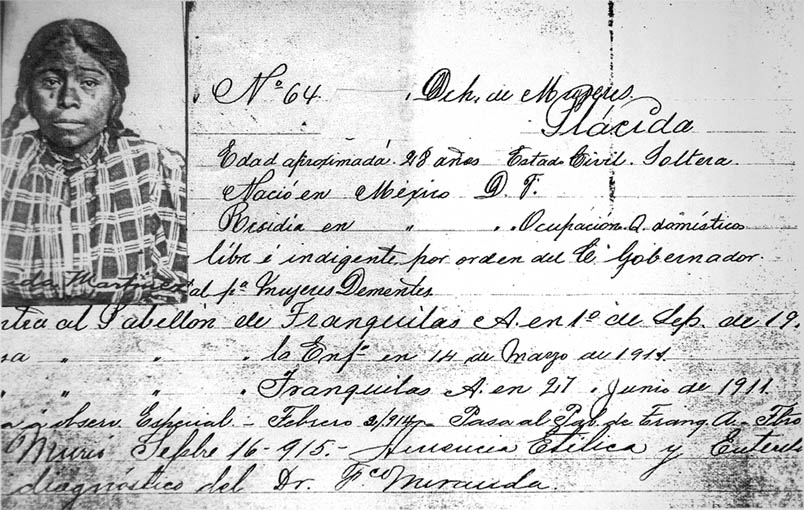 Nº 64. Dch. de Mujeres.
Plácida
Edad aproximada 28 años Estado Civil. Soltera.
Nació en México D. F.
Residía en " " Ocupación Q. doméstico
libr é indigente, por orden del C. Gobernador
ida Martinez
al pª Mujeres Dementes
ntra al Pabellón de Tranquilas A. en 1º de Sep. de 19
sa " " " lo Enfª en 14 de Marzo de 1911.
" " " Tranquilas A. en 27 " Junio de 1911.
a á observ. Especial - Febrero 2/914 - Pasa al Pab. de Tranq. A - Fbro
Murió Sepbre 16-915.- Etílica y
diagnóstico del Dr. Fco Miranda.